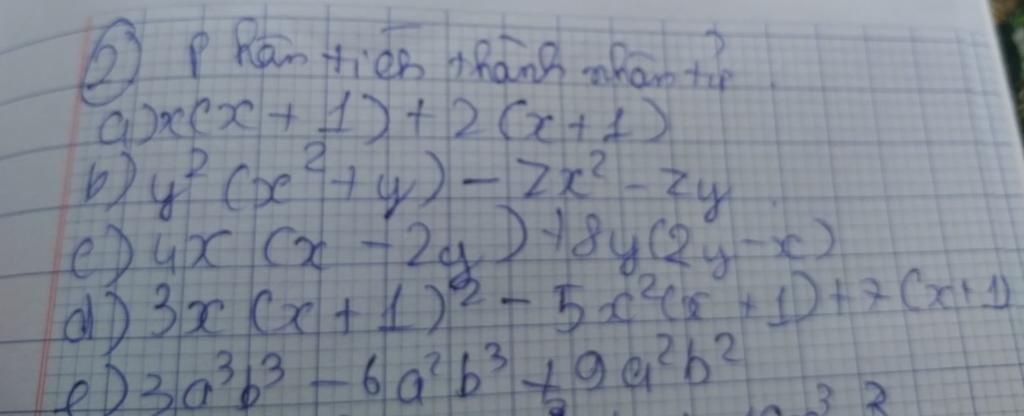 ② Phân tích thành nhân tử.
a) x(x + 1) + 2(x + 1)
b) y² (x² + y) - zx² - zy.
c) 4x (x - 2y) + 8y(2y - x)
d) 3x (x + 1)² - 5x²(x + 1) + 7(x+1)
e) 3a³b³ - 6a²b³ + 9a²b²